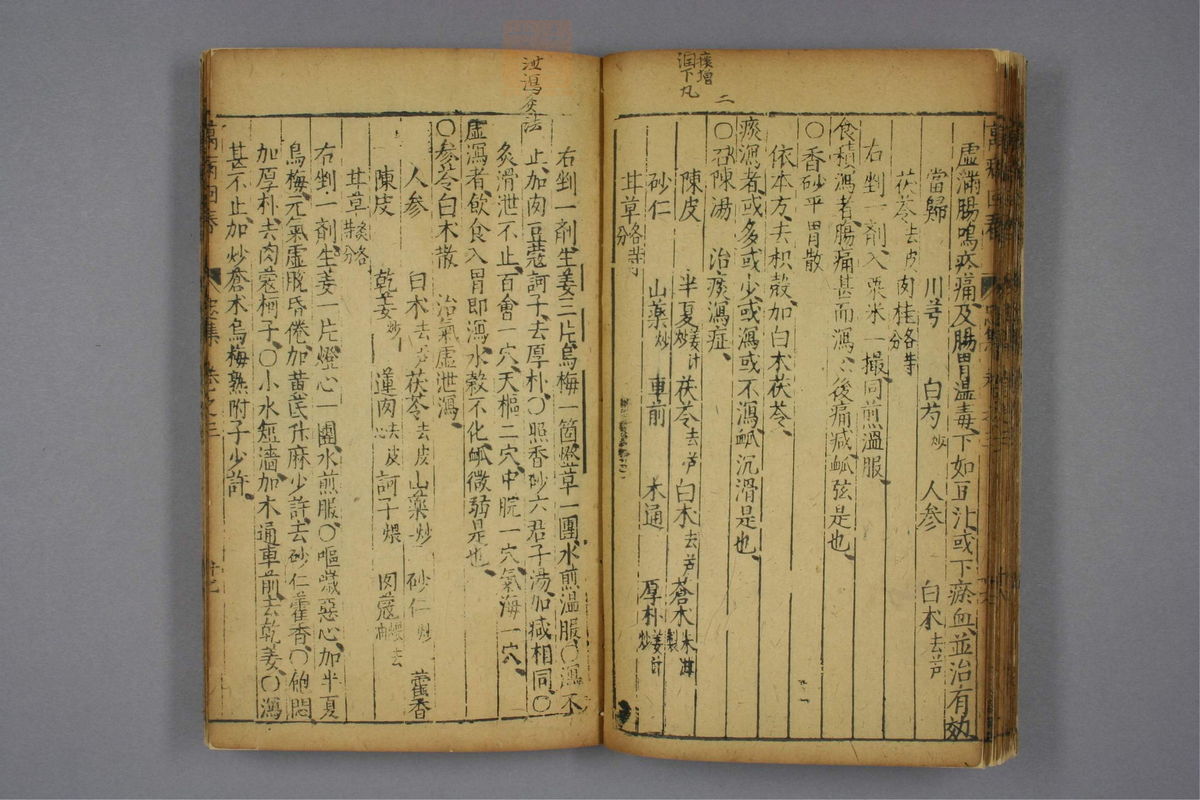 痰增
潤下丸
二
虛滿腸鳴疼痛及腸胃温毒下如豆汁或下瘀血並治有効
當歸 川芎 白芍炒 人参 白朮去芦
茯苓去皮 肉桂各等分
右剉一剤入粟米一撮同煎温服
食積瀉者腸痛甚而瀉瀉後痛减䘑弦是也
〇香砂平胃散
依本方去枳殼加白朮茯苓
痰瀉者或多或少或瀉或不瀉䘑沉滑是也
〇二陳湯 治痰瀉症
陳皮 半夏姜汁炒 茯苓去芦 白朮去芦 蒼朮米泔製
砂仁 山薬炒 車前 木通 厚朴姜汁炒
甘草各等分
泄瀉灸法
右剉一剤生姜三片烏梅一箇燈草一團水煎温服〇瀉不
止加肉豆蔻訶子去厚朴〇照香砂六君子湯加减相同〇
灸滑泄不止百會一穴天樞二穴中脘一穴氣海一穴
虛瀉者飲食入胃即瀉水穀不化䘑微弱是也
〇参苓白朮散 治氣虛泄瀉
人参 白朮去芦 茯苓去皮 山薬炒 砂仁炒 藿香
陳皮 乾姜炒 蓮肉去皮心 訶子煨 肉蔻煨去油
甘草炙各等分
右剉一剤生姜一片燈心一團水煎服〇嘔噦惡心加半夏
烏梅元氣虛脫昏倦加黃芪升麻少許去砂仁藿香〇飽悶
加厚朴去肉蔻柯子〇小水短濇加木通車前去乾姜〇瀉
甚不止加炒蒼朮烏梅熟附子少許
萬病回春
卷之三